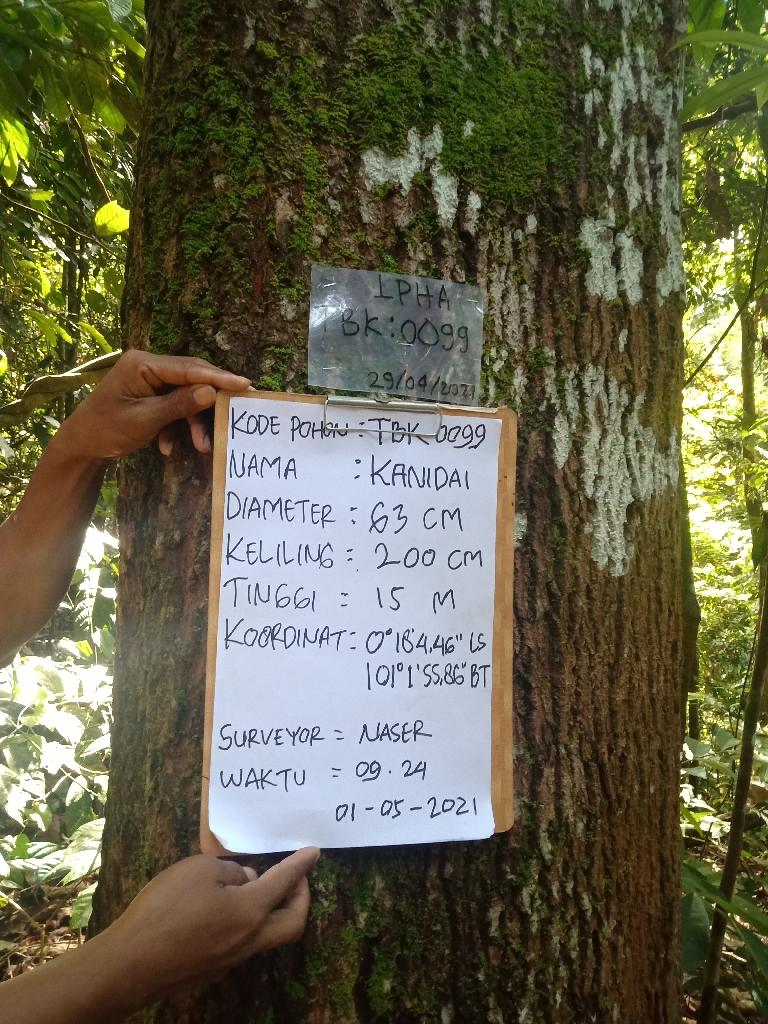 LPHA
TBK:0099
29/04/2021
KODE POHON : TBK 0099
NAMA : KANIDAI
DIAMETER : 63 CM
KELILING = 200 CM
TINGGI = 15 M
KOORDINAT = 0°18'4,46" LS
101°1'55,86" BT
SURVEYOR = NASER
WAKTU = 09.24
01-05-2021